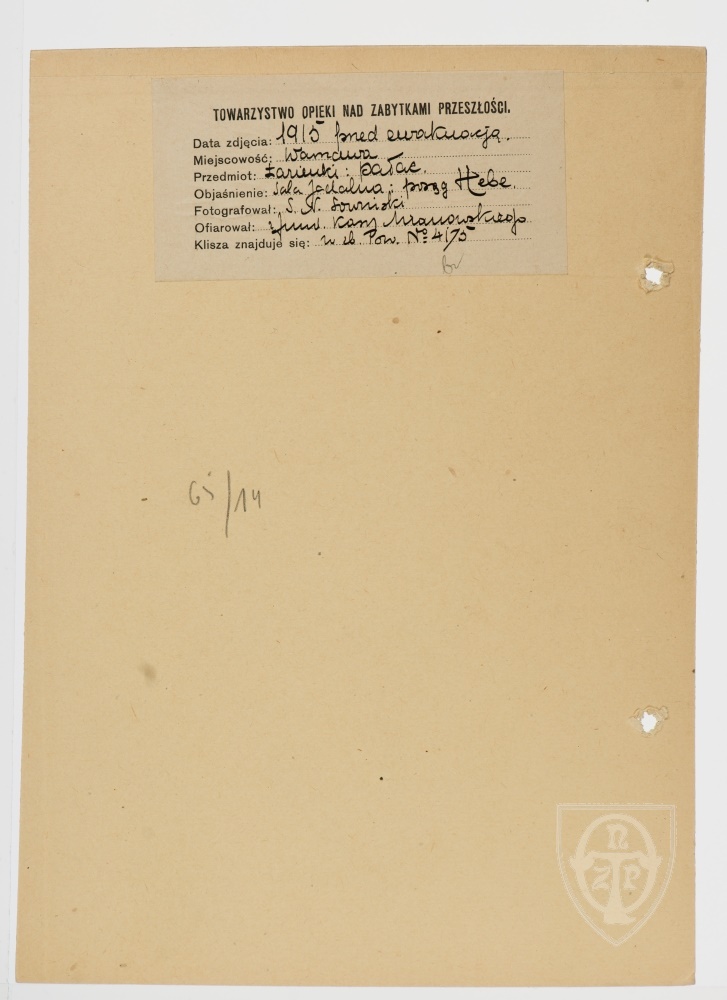 TOWARZYSTWO OPIEKI NAD ZABYTKAMI PRZESZŁOŚCI.
Data zdjęcia: 1915 przed ewakuacją.
Miejscowość: Warszawa
Przedmiot: Łazienki: pałac.
Objaśnienie: Sala Jadalna: posąg Hebe.
Fotografował: S. N.
Ofiarował: fund. Kasy Mianowskiego
Klisza znajduje się: w zb. Tow. № 4175
65/14
T O N Z P